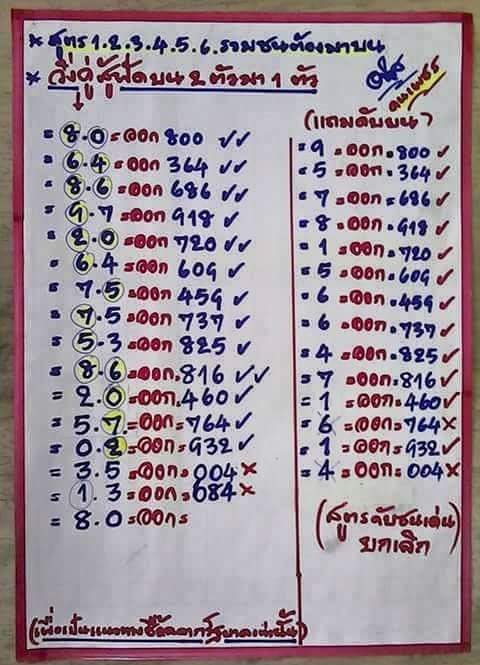 * สูตร 1.2.3.4.5.6.รวมชนต้องมาบน
* วิ่งคู่สู้ฟัดบน 2 ตัวมา 1 ตัว
= 8.0 = ออก 800 ✓✓
= 6.4 = ออก 364 ✓✓
= 8.6 = ออก 686 ✓✓
= 9.7 = ออก 918 ✓
= 2.0 = ออก 720 ✓✓
= 6.4 = ออก 609 ✓
= 7.5 = ออก 459 ✓
= 7.5 = ออก 737 ✓
= 5.3 = ออก 825 ✓
= 8.6 = ออก. 816 ✓✓
= 2.0 = ออก. 460 ✓
= 5.7 = ออก = 764 ✓
= 0.2 = ออก = 932 ✓
= 3.5 = ออก = 004 ×
= 1.3 = ออก = 684 ×
= 8.0 = ออก =
(แถมดับบน)
= 9 = ออก = 800 ✓
= 5 = ออก . 364 ✓
= 7 = ออก = 686 ✓
= 8 = ออก . 918 ✓
= 1 = ออก = 720 ✓
= 5 = ออก = 609 ✓
= 6 = ออก = 459 ✓
= 6 = ออก = 737 ✓
= 4 = ออก = 825 ✓
= 7 = ออก = 816 ✓
= 1 = ออก = 460 ✓
= 6 = ออก = 764 ×
= 1 = ออก = 932 ✓
= 4 = ออก = 004 ×
(สูตรดับชนเด่น
ยกเลิก)